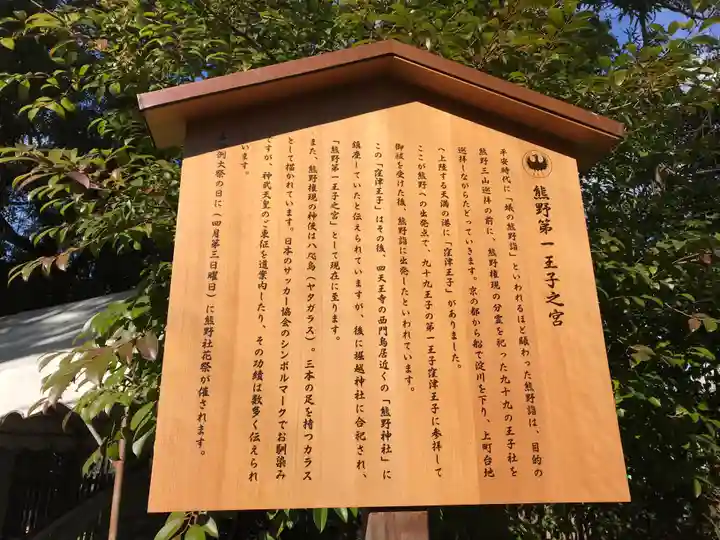 熊野第一王子之宮
平安時代に「蟻の熊野詣」といわれるほど賑わった熊野詣は、目的の
熊野三山巡拝の前に、熊野権現の分霊を祀った九十九の王子社を
巡拝しながらたどっていきます。京の都から船で淀川を下り、上町台地
へ上陸する天満の港に「窪津王子」がありました。
ここが熊野への出発点で、九十九王子の第一王子窪津王子に参拝して
御祓を受けた後、熊野詣に出発したといわれています。
この「窪津王子」はその後、四天王寺の西門鳥居近くの「熊野神社」に
鎮座していたと伝えられていますが、後に堀越神社に合祀され、
「熊野第一王子之宮」として現在に至ります。
また、熊野権現の神使は八咫烏（ヤタガラス）。三本の足を持つカラス
として描かれています。日本のサッカー協会のシンボルマークでお馴染み
ですが、神武天皇のご東征を道案内したり、その功績は数多く伝えられ
います。
例大祭の日に（四月第三日曜日）に熊野社花祭が催されます。